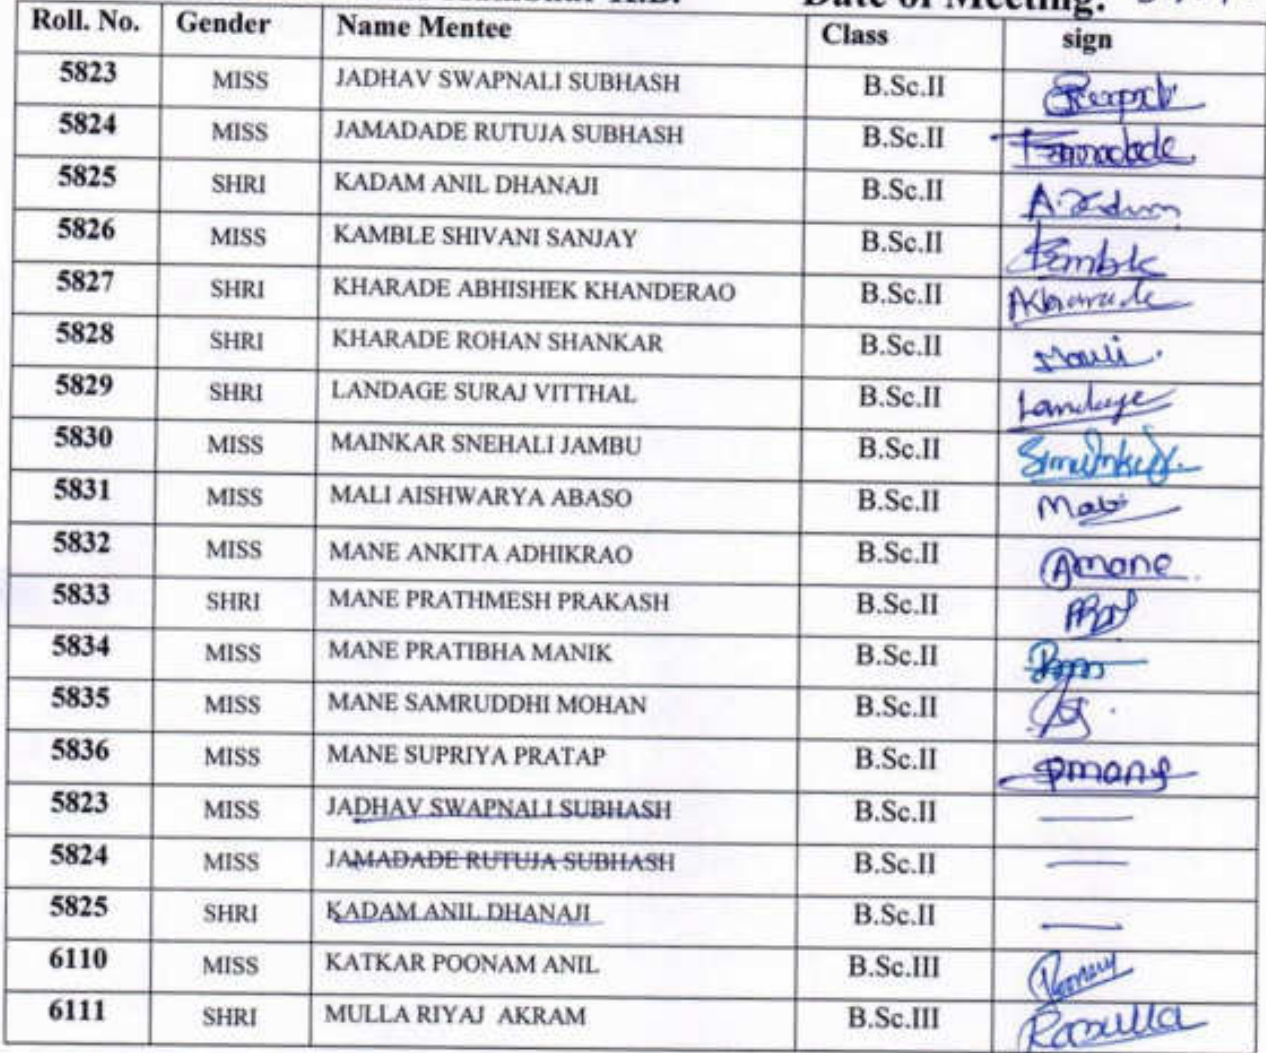 Date of Meeting:
Roll. No. Gender Name Mentee Class sign
5823 MISS JADHAV SWAPNALI SUBHASH B.Sc.II
5824 MISS JAMADADE RUTUJA SUBHASH B.Sc.II Jamadade
5825 SHRI KADAM ANIL DHANAJI B.Sc.II
5826 MISS KAMBLE SHIVANI SANJAY B.Sc.II Kamble
5827 SHRI KHARADE ABHISHEK KHANDERAO B.Sc.II AKharade
5828 SHRI KHARADE ROHAN SHANKAR B.Sc.II
5829 SHRI LANDAGE SURAJ VITTHAL B.Sc.II Landage
5830 MISS MAINKAR SNEHALI JAMBU B.Sc.II
5831 MISS MALI AISHWARYA ABASO B.Sc.II Mali
5832 MISS MANE ANKITA ADHIKRAO B.Sc.II Amane
5833 SHRI MANE PRATHMESH PRAKASH B.Sc.II
5834 MISS MANE PRATIBHA MANIK B.Sc.II
5835 MISS MANE SAMRUDDHI MOHAN B.Sc.II
5836 MISS MANE SUPRIYA PRATAP B.Sc.II
5823 MISS JADHAV SWAPNALI SUBHASH B.Sc.II —
5824 MISS JAMADADE RUTUJA SUBHASH B.Sc.II —
5825 SHRI KADAM ANIL DHANAJI B.Sc.II —
6110 MISS KATKAR POONAM ANIL B.Sc.III
6111 SHRI MULLA RIYAJ AKRAM B.Sc.III